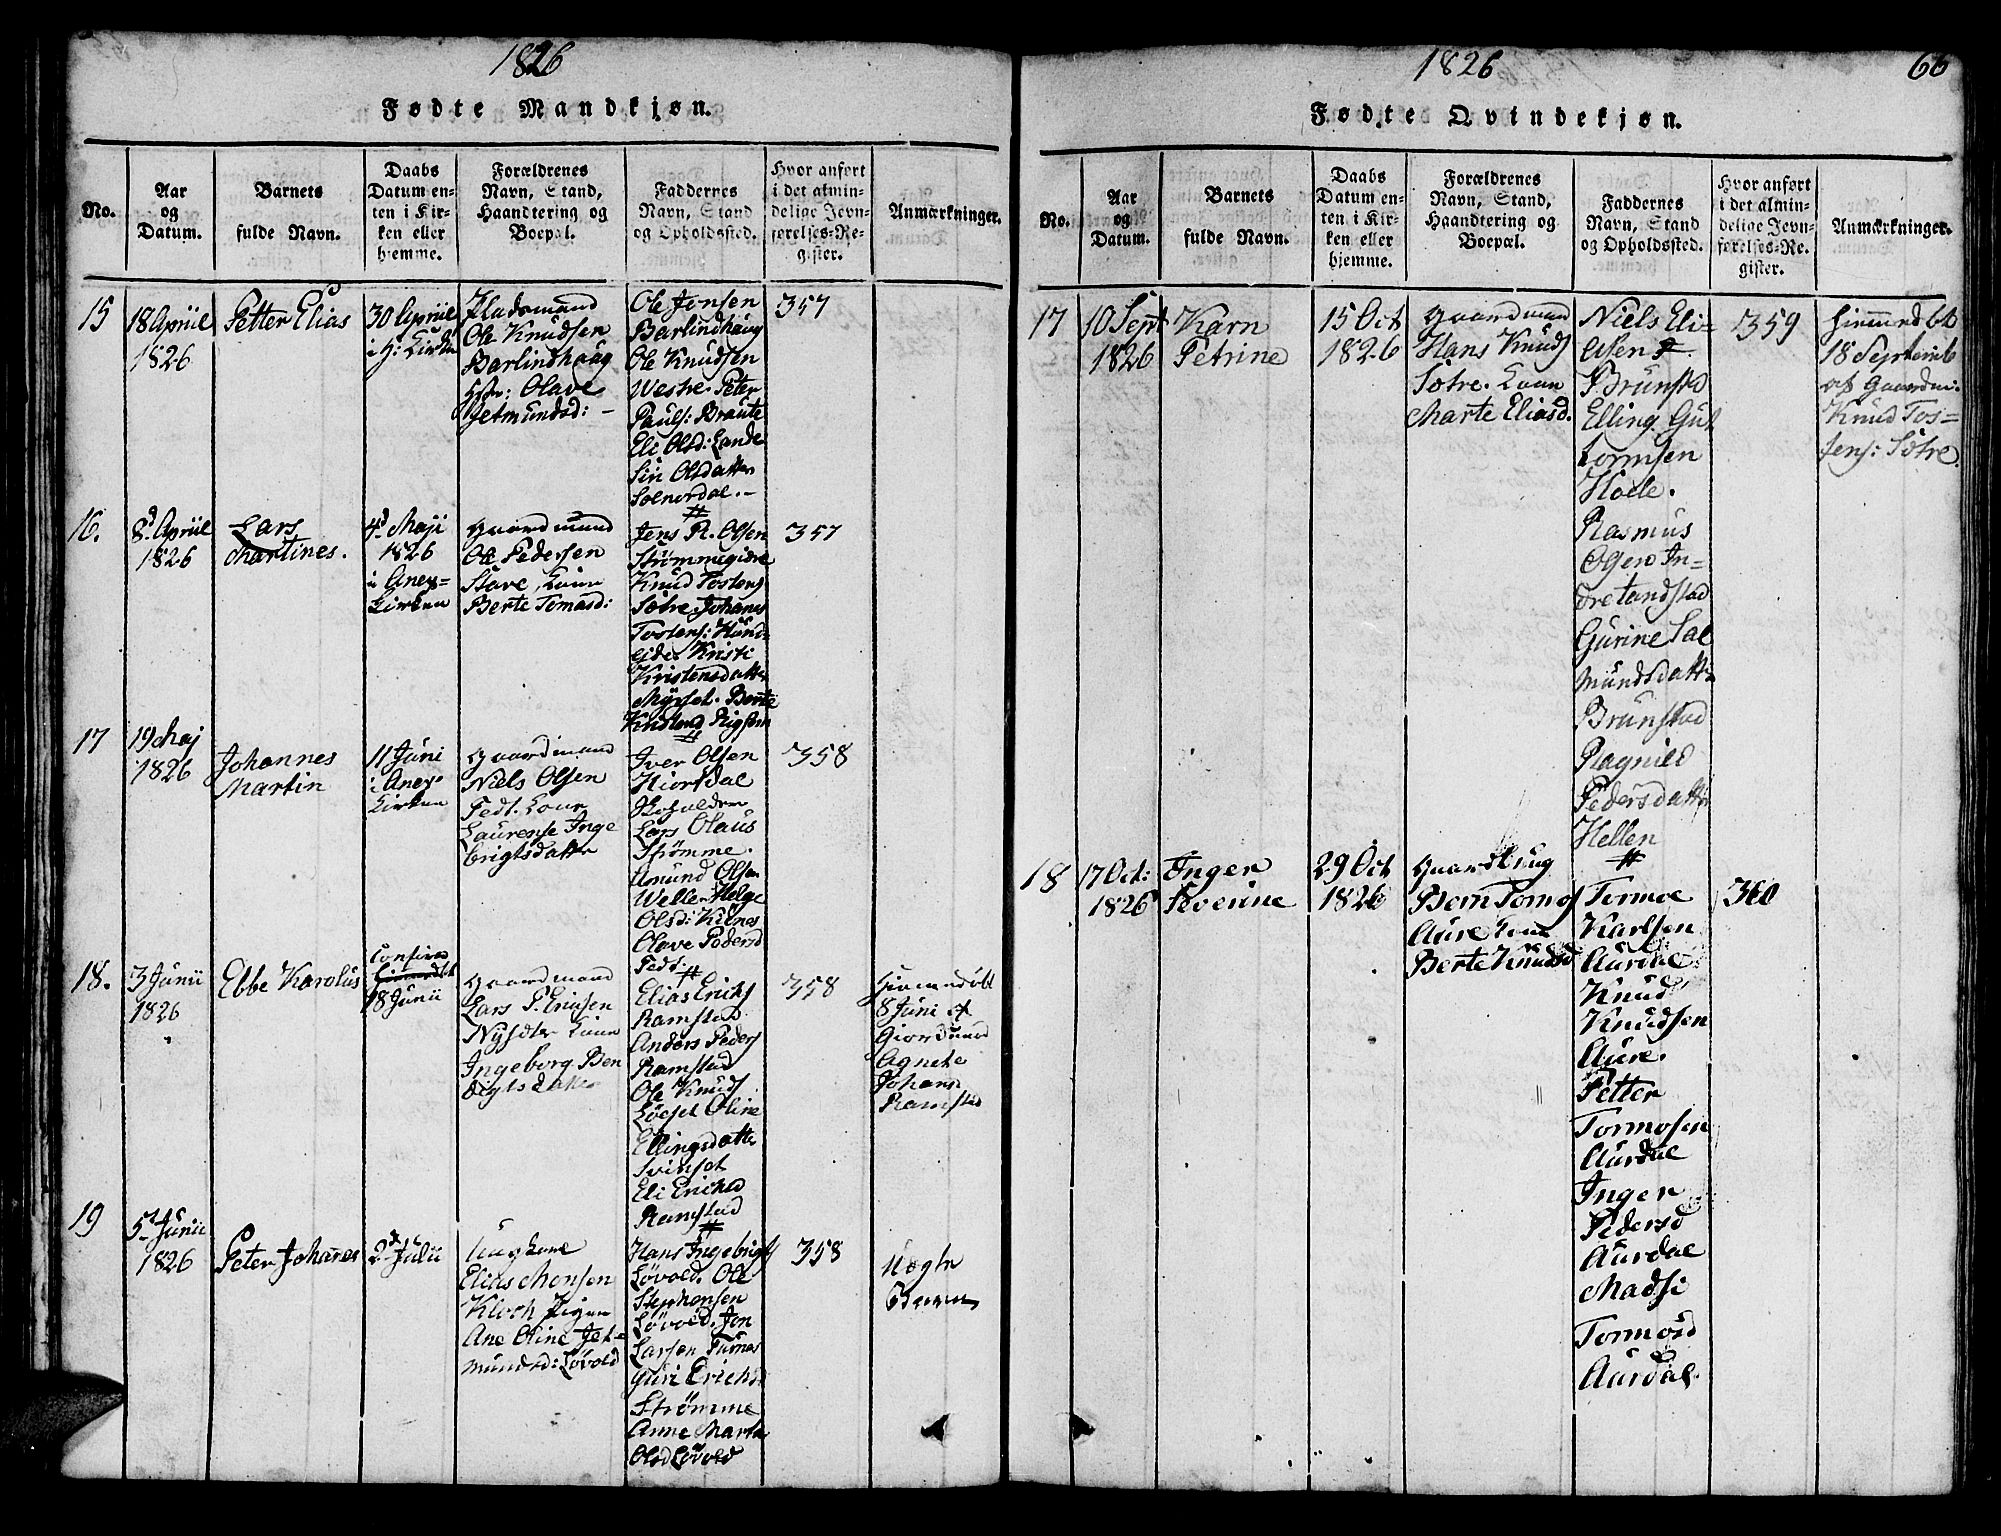 1826
Fødte Mandkjøn.
No.
Aar
og
Datum.
Barnets
fulde Navn.
Daabs
Datum en-
ten i Kir-
ken eller
hjemme.
Forældrenes
Navn, Stand,
Haandtering og
Boepæl.
Faddernes
Navn, Stand
og Opholdssted.
Hvor anført
i det almin-
delige Jevn-
førelses-Re-
gister.
Anmærkninger.
15
18 Apriil
1826
Petter Elias
30 Apriil
i H: Kirken
Pladsmand
Ole Knudsen
Barlindhaug
Hstr: Olave
Jetmundsd: -
Ole Jonsen
Barlindhaug
Ole Knudsen
Westre. Peter
Pauls: Braute
Eli Olsd: Lande
Siri Olsdatter
Solnordal. -
357
16.
8d Apriil
1826
Lars
Martines.
4d Maji
1826
i Anex-
Kirken
Gaardmand
Ole Pedersen
Stave, Kone
Berte Tomasd:
Jens R. Olsen
Strømmegidre
Knud Tostens
Sætre. Johanes
Tostens: Hund-
ejde. Kristi
Kristensdatter
Myrset. Berte
357
17
19 Maj
1826
Johannes
Martin
11 Juni
i Anex-
Kirken
Gaardmand
Niels Olsen
Fedt. Kone
Laurense Inge
brigtsdatter
Iver Olsen
Hiortdal
Lars Olaus
Strømme.
Amund Olsen
Welle. Helge
Olsd: Kilnes
Olave Pedersd
Fedt:
358
18.
3 Junii
1826
Ebbe Karolus
Confirm
18 Junii
Gaardmand
Lars P. Eriksen
Nysæter Kone
Ingeborg Ben
digtsdatter
Elias Ericks
Ramstad
Anders Peders
Ramstad
Ole Knuds
Løeset Oline
Ellingsdatter
Svinset
Eli Ericksd
Ramstad
358
Hiemmedøbt
8 Juni af
Giordmod
Agnete
Johans
Ramstad
19
5d Junii
1826
Peter Johanes
2d Julii
Ungkarl
Elias Monsen
Kloch Pigen
Ane Oline Jet-
mundsd: Løvold
Hans Ingebrigts
Løvold. Ole
Stephensen
Løvold. Jon
Larsen Furnes
Guri Ericksd
Strømme
Anne Marta
Olsd Løvold
358
Uægte
Barn
1826
66
Fødte Qvindekjøn.
No.
Aar
og
Datum.
Barnets
fulde Navn.
Daabs
Datum en-
ten i Kir-
ken eller
hjemme.
Forældrenes
Navn, Stand,
Haandtering og
Boepæl.
Faddernes
Navn, Stand
og Opholdssted.
Hvor anført
i det almin-
delige Jevn-
førelses-Re-
gister.
Anmærkninger.
17
10 Sept
1826
Karn
Petrine
15 Oct
1826
Gaardmand
Hans Knuds
Sætre. Kone
Marte Eliasd.
Niels Eli-
esen
Brunstad
Elling Gut
tormsen
Hoele.
Rasmus
Olsen In-
dretandstad
Gurine Sal
mundsdatter
Brunstad
Ragnild
Pedersdatter
Hellen
359
Hiemmedøbt
18 Septemb
af Gaardm:
Knud Tos-
tens: Sætre.
18
17 Oct:
1826
Inger
Severine
29 Oct
1826
Gaardbrug
Bern Tomos
Aure Kone
Berte Knudsd
Tormoe
Karlsen
Aurdal
Knud
Knudsen
Aure.
Petter
Tormosen
Aurdal
Inger
Pedersd
Aurdal
Madsi
Tormosd
Aurdal.
360